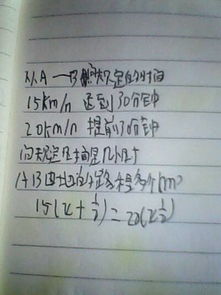 从A一B 规定的时间
15km/n 迟到30分钟
20km/n 提前30分钟
问规定时间是几小时
A B两地的路多长是多少km
15(x+½)=20(x½)